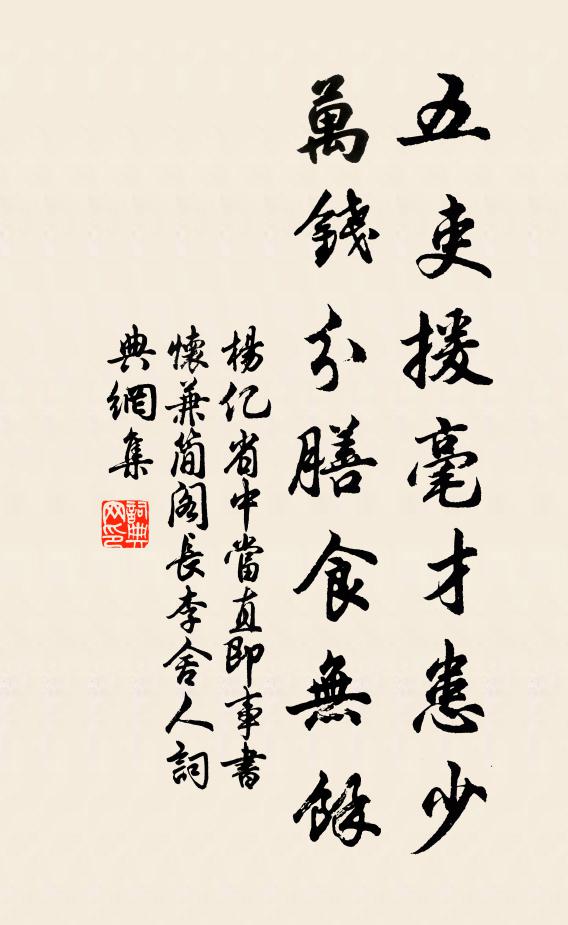 五吏援毫才患少
萬錢分膳食無餘
楊億省中當直即事書
懷兼簡閣長李舍人詞
典網集
詞典
网印